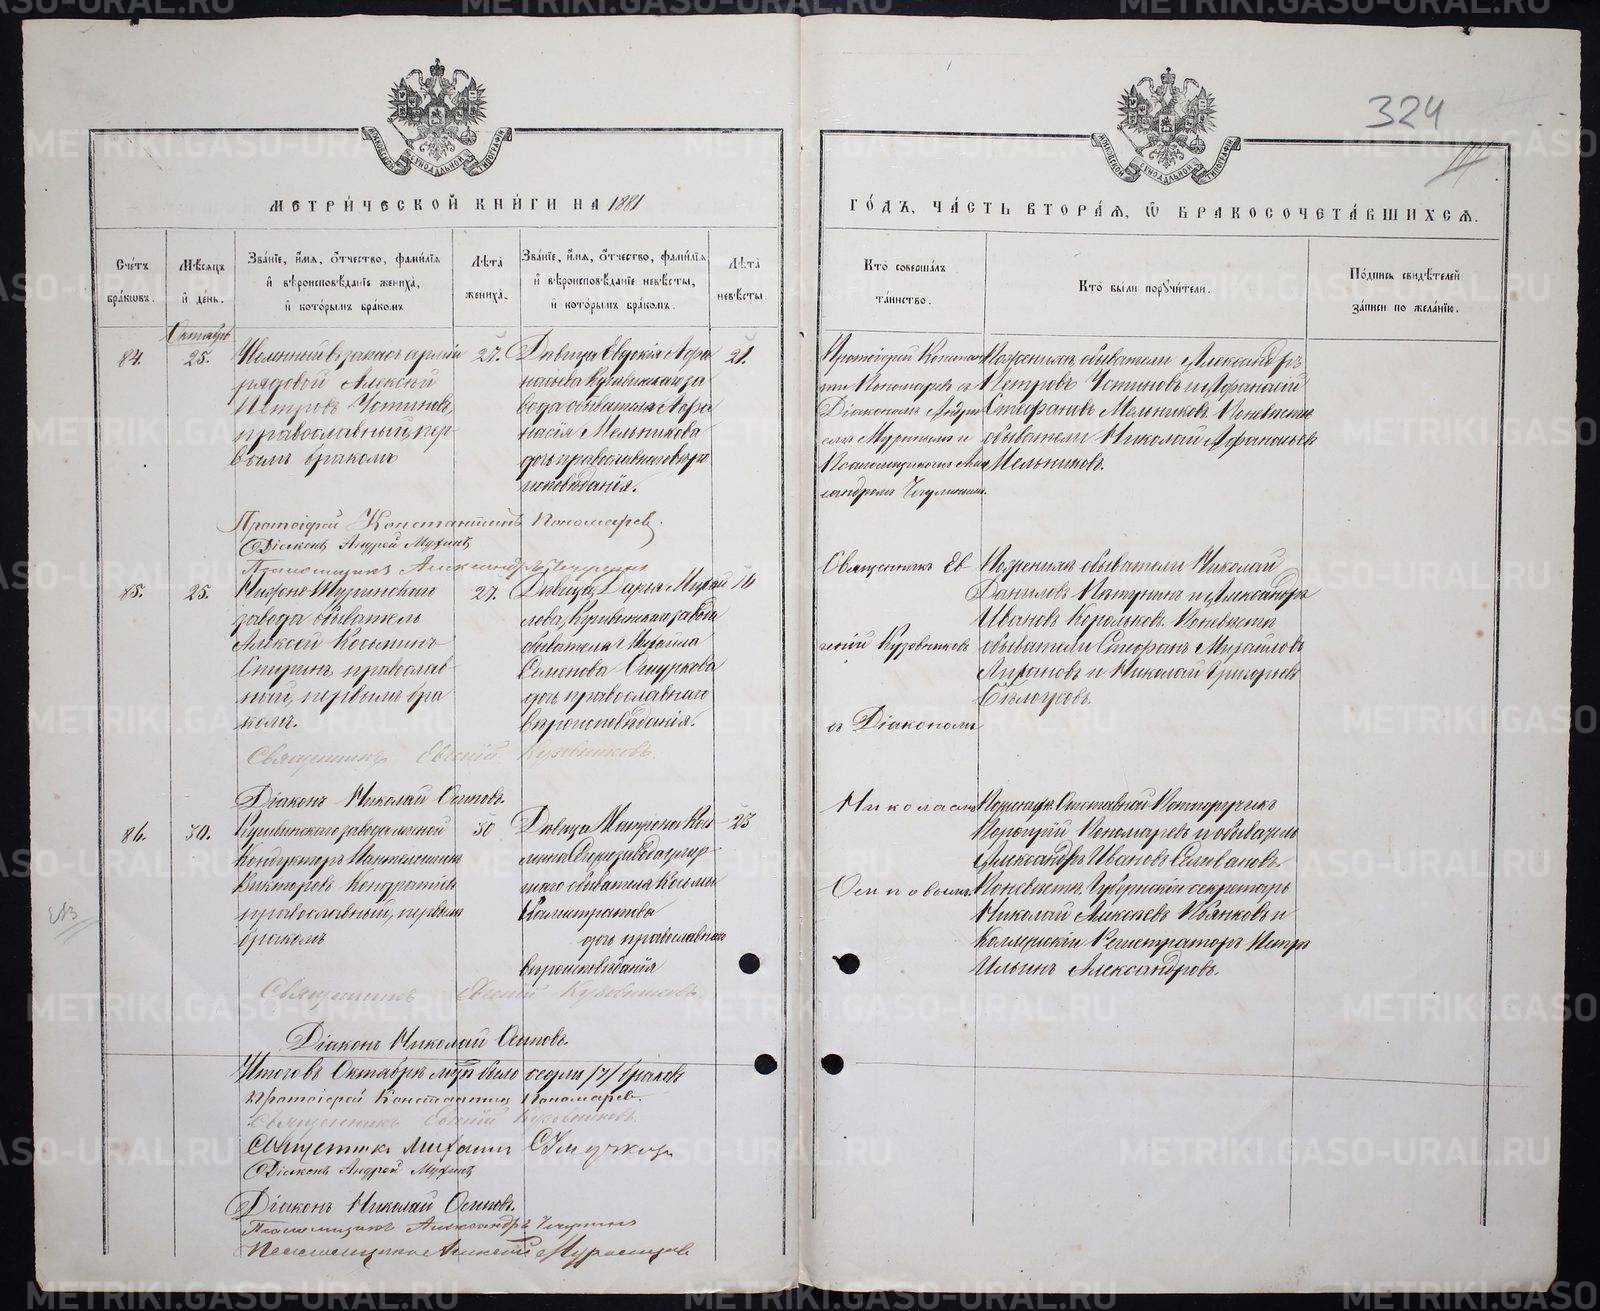 324
МЕТРИ́ЧЕСКОЙ КНИ́ГИ НА 1881
ГО́ДЪ, ЧА́СТЬ ВТОРА́Я, Ѽ БРАКОСОЧЕТА́ВШИХСЯ.
Сче́тъ бра́ковъ.
Мѣ́сяцъ и҆ де́нь.
Зва́нїе, и҆́мя, ѻ҆́тчество, фами́лїя
и҆ вѣроисповѣ́данїе жениха̀,
и҆ кото́рымъ бра́комъ
Лѣ́та жениха̀.
Зва́нїе, и҆́мя, ѻ҆́тчество, фами́лїя
и҆ вѣроисповѣ́данїе невѣ́сты,
и҆ кото́рымъ бра́комъ.
Лѣ́та невѣ́сты
Кто̀ соверша́лъ та́инство.
Кто̀ бы́ли пору́чители.
По́дпись свидѣ́телей
за́писи по жела́нїю.
Октябрь
84.
25.
рядовой Алексѣй
Петровъ Устиновъ,
православный, пер-
вымъ бракомъ
27.
Дѣвица Евдокія Афа-
насьева Кушвинскаго за-
вода обывателя Афа-
насія Мельникова
дочь православнаго вѣро
исповѣданія.
21.
Протоіерей Констан-
тинъ Пономаревъ съ
Діакономъ Андре-
емъ Мухинымъ и
Псаломщикомъ Алек
сандромъ
По женихѣ, обыватели Александръ
Петровъ Устиновъ и Афанасій
Стефановъ Мельниковъ. По невѣстѣ
обыватели Николай Афанасьевъ
Мельниковъ.
Протоіерей Константинъ Пономаревъ.
Діаконъ Андрей Мухинъ
Псаломщикъ Александръ
85.
25.
Нижне-Туринскаго
завода обыватель
Алексѣй Косьминъ
православ-
ный, первымъ бра
комъ.
27.
Дѣвица, Дарья Михай
лова, Кушвинскаго завода
обывателя Михаила
Семенова Ошуркова
дочь православнаго
вѣроисповѣданія.
Священникъ Ев
геній Кузовниковъ
съ Діакономъ
По женихѣ обыватели Николай
Даниловъ и Александръ
Ивановъ Корольковъ. По невѣстѣ
обыватели Стефанъ Михайловъ
и Николай Григорьевъ
Бѣлоусовъ.
Священникъ Евгеній Кузовниковъ.
Діаконъ Николай Осиповъ.
86.
30.
Кушвинскаго завода лѣсной
Кондукторъ Пантелеимонъ
Викторовъ Кондратьевъ
православный, первымъ
бракомъ
30
Дѣвица Матрона Кось
обывателя Косьмы
дочь православнаго
вѣроисповѣданія
23
Николаемъ
Осиповымъ.
По женихѣ Отставной Подпоручикъ
Порфирій Пономаревъ и обыватель
Александръ Ивановъ Селивановъ
По невѣстѣ: Губернскій секретарь
Николай Алексѣевъ Пьянковъ и
Коллежскій Регистраторъ Петръ
Ильинъ Александровъ.
Священникъ Евгеній Кузовниковъ.
Діаконъ Николай Осиповъ.
Итого въ Октябрѣ м-цѣ было седмь /7/ браковъ
Протоіерей Константинъ Пономаревъ.
Священникъ Евгеній Кузовниковъ.
Священникъ Михаилъ
Діаконъ Андрей Мухинъ
Діаконъ Николай Осиповъ.
Псаломщикъ Александръ
Псаломщикъ Алексѣй
METRIKI.GASO-URAL.RU